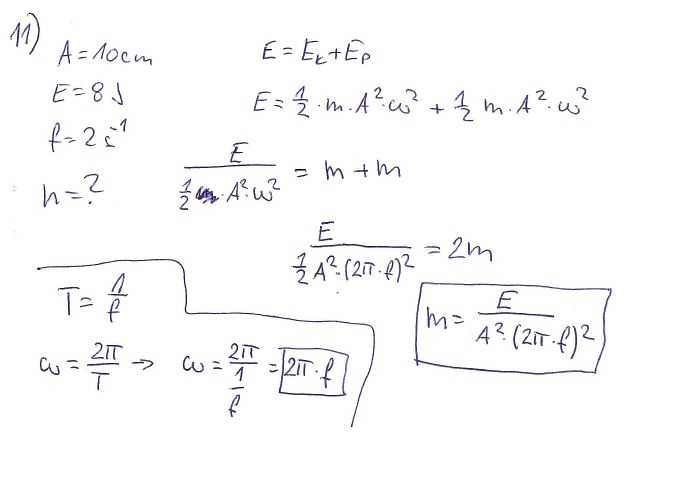 11)
A = 10cm
E = 8 J
f = 2 s⁻¹
m = ?
E = Eₖ + Eₚ
E = 1/2 · m · A² · ω² + 1/2 m · A² · ω²
E / (1/2 · A² · ω²) = m + m
E / (1/2 A² · (2π · f)²) = 2m
m = E / (A² · (2π · f)²)
T = 1/f
ω = 2π/T → ω = 2π/(1/f) = 2π · f